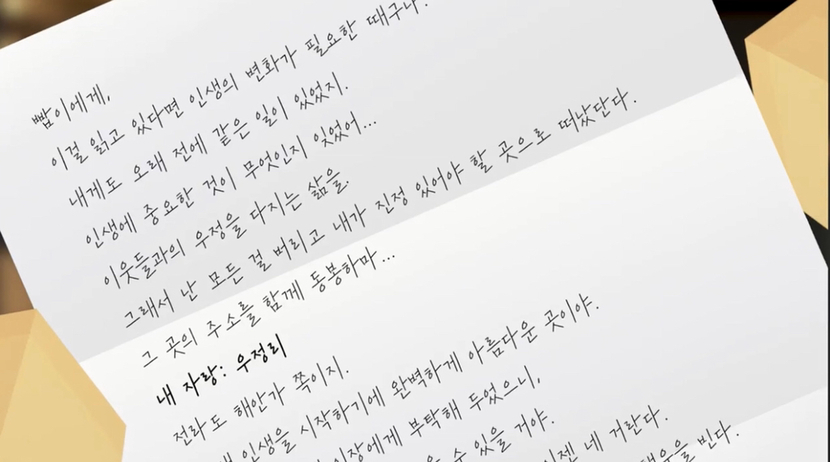 뺩이에게,
이걸 읽고 있다면 인생의 변화가 필요한 때구나.
내게도 오래 전에 같은 일이 있었지.
인생에 중요한 것이 무엇인지 잊었어...
이웃들과의 우정을 다지는 삶을.
그래서 난 모든 걸 버리고 내가 진정 있어야 할 곳으로 떠났단다.
그 곳의 주소를 함께 동봉하마...
내 자랑: 우정리
전라도 해안가 쪽이지.
인생을 시작하기에 완벽하게 아름다운 곳이야.
부탁해 두었으니,
수 있을 거야.
이젠 네 거란다.
빈다.